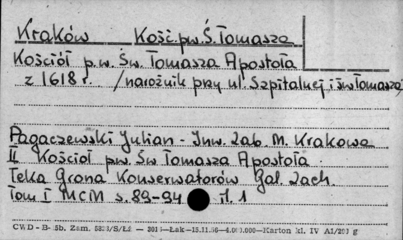 Kraków Kość. p.w. Ś. Tomasza
Kościół p.w. Św. Tomasza Apostoła
z 1618 r. /narożnik przy ul. Szpitalnej i św Tomasza/
Pagaczewski Julian - Inw. Zab. M. Krakowa
II Kościoł pw. Św Tomasza Apostoła
Teka Grona Konserwatorów Gal. Zach.
Tom I MCM s. 89-94 il. 1
CWD - B- 5b. Zam.